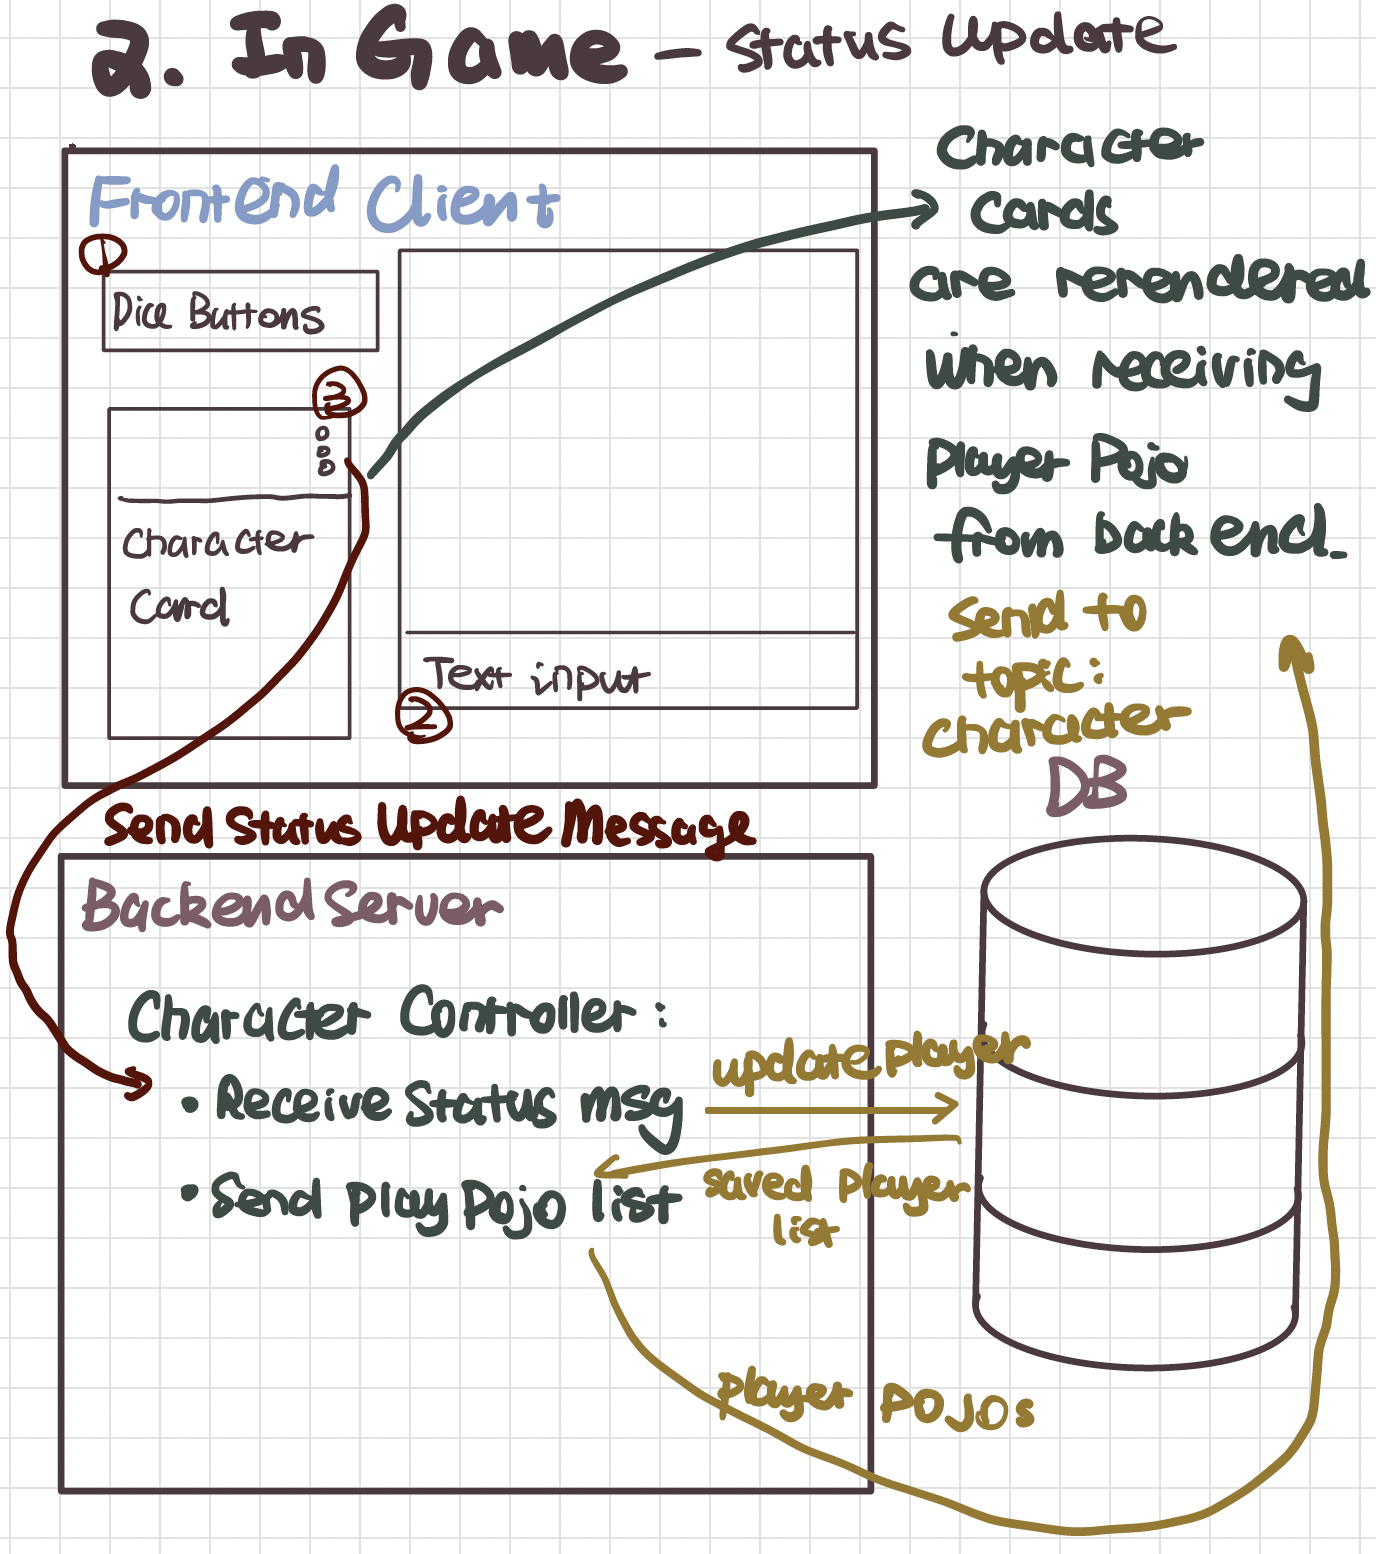 2. In Game - Status Update
Frontend Client
1
Dice Buttons
3
Character
Card
Text input
2
Character
Cards
are rerendered
when receiving
player Pojo
from back end.
Send to
topic:
character
DB
Send Status Update Message
Backend Server
Character Controller:
• Receive Status msg
• Send play Pojo list
update player
saved player
list
player POJOs